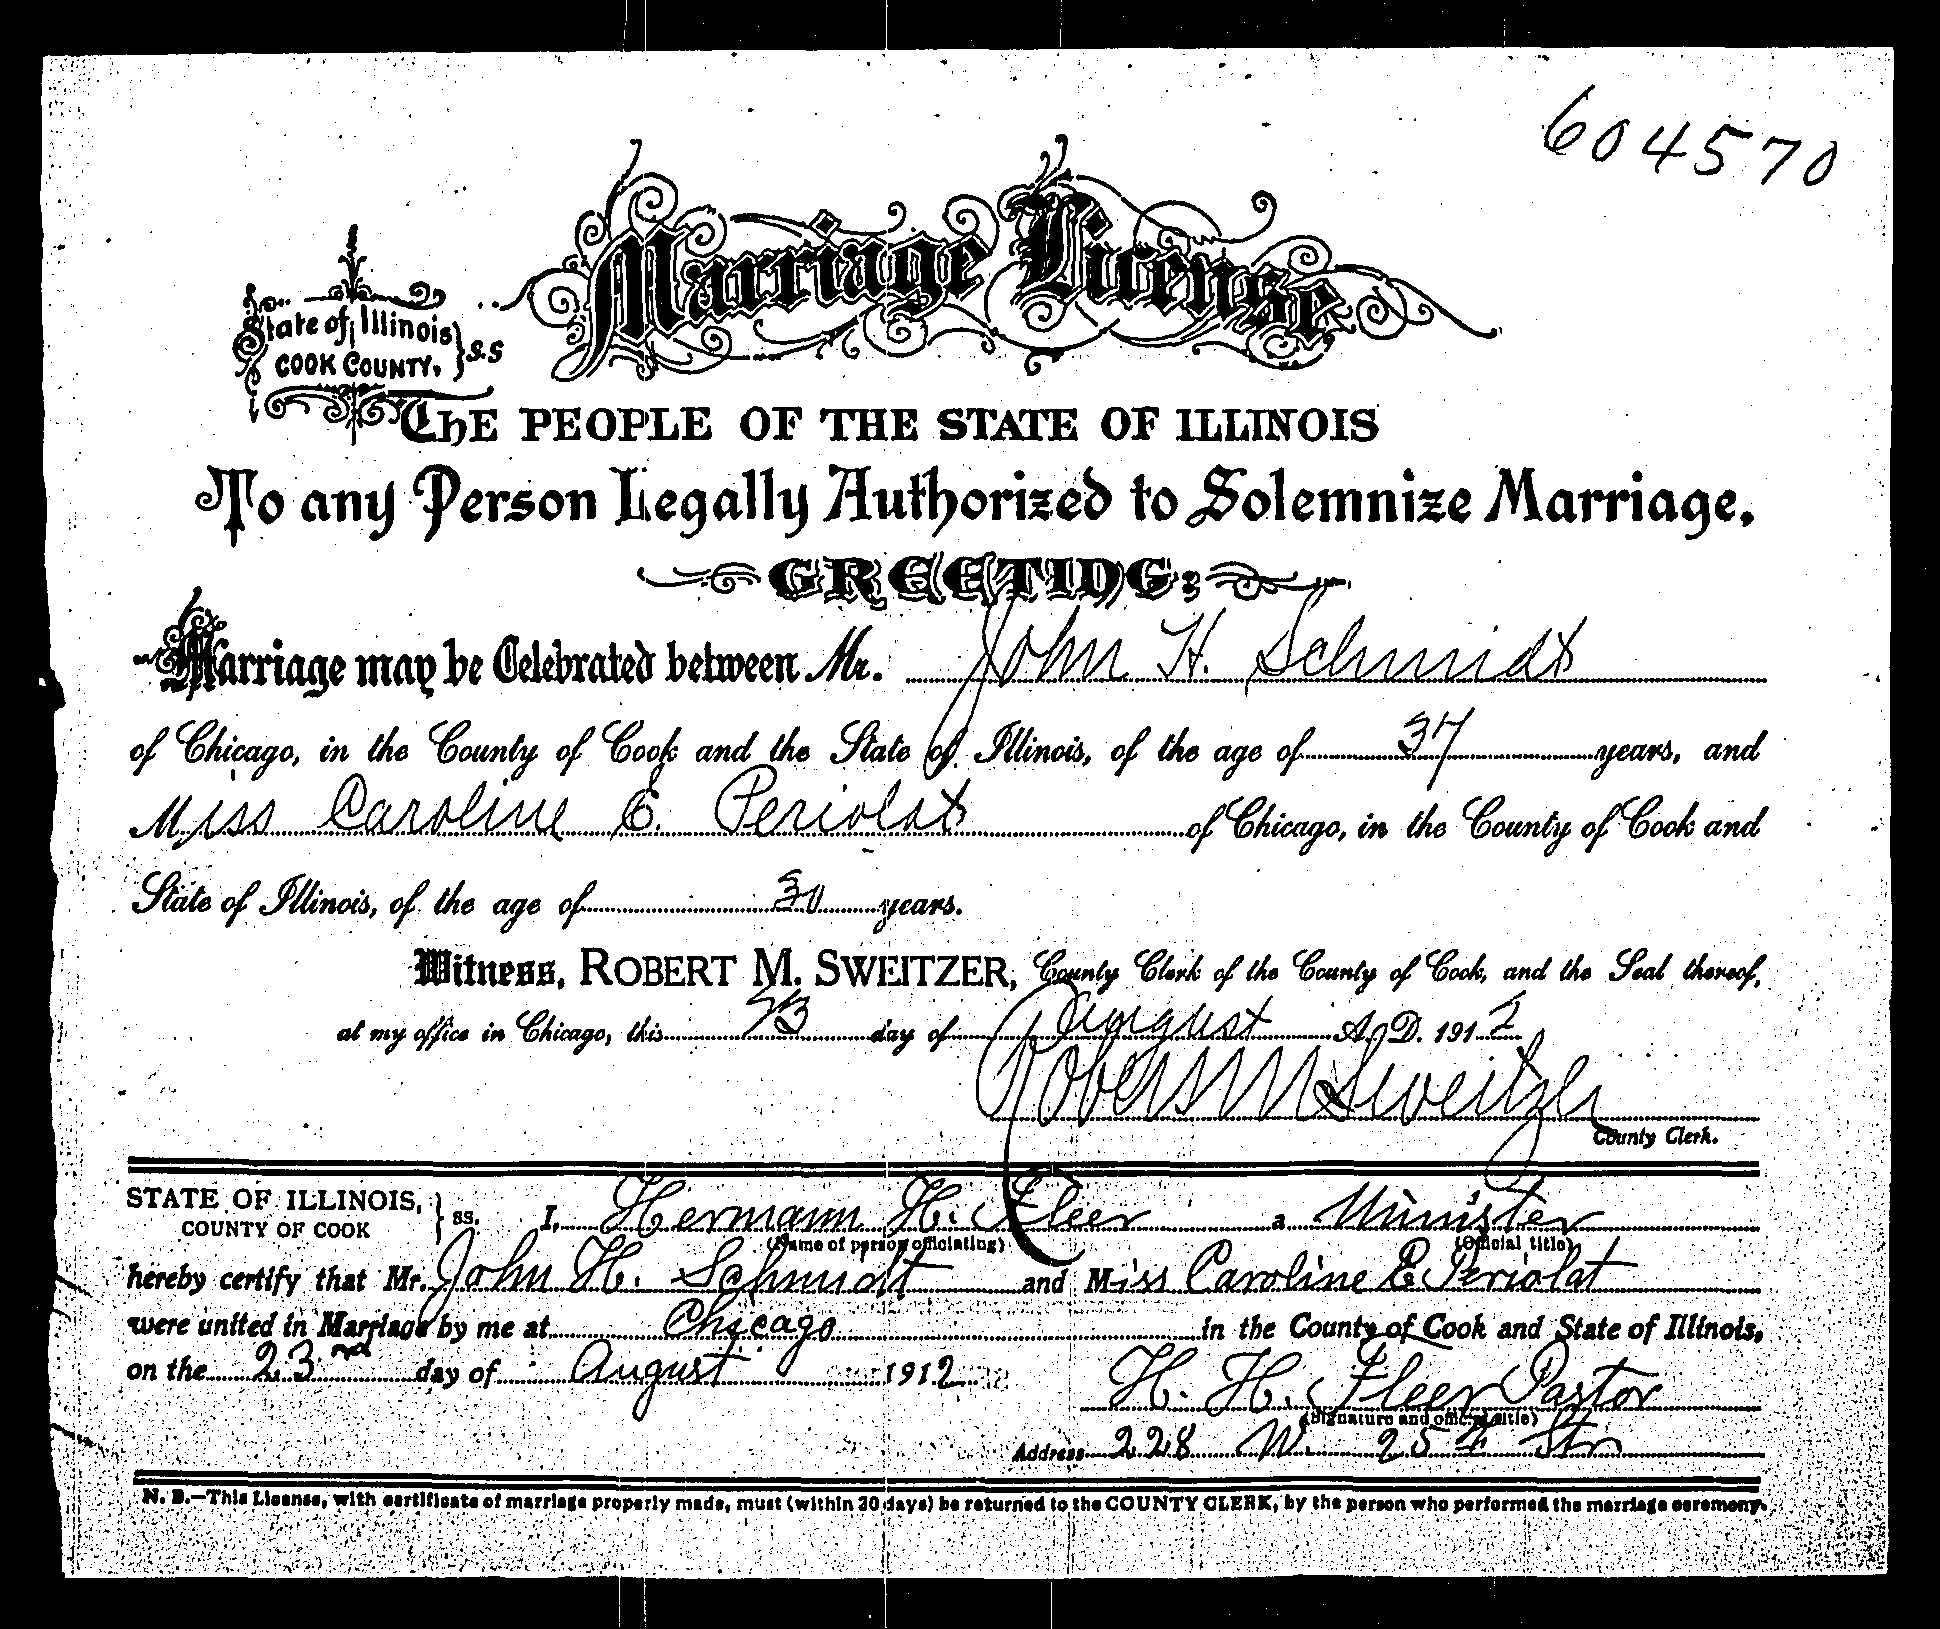 604570
Marriage License
State of Illinois
COOK COUNTY. } S.S
THE PEOPLE OF THE STATE OF ILLINOIS
To any Person Legally Authorized to Solemnize Marriage,
GREETING:
Marriage may be Celebrated between Mr. John H. Schmidt
of Chicago, in the County of Cook and the State of Illinois, of the age of 37 years, and
Miss Caroline E. Periolat of Chicago, in the County of Cook and
State of Illinois, of the age of 30 years.
Witness, ROBERT M. SWEITZER, County Clerk of the County of Cook, and the Seal thereof,
at my office in Chicago, this 23 day of August A. D. 1912
Robert M Sweitzer
County Clerk.
STATE OF ILLINOIS, } ss. I, Hermann H. Fleer a Minister
COUNTY OF COOK (Name of person officiating) (Official title)
hereby certify that Mr. John H. Schmidt and Miss Caroline E. Periolat
were united in Marriage by me at Chicago in the County of Cook and State of Illinois,
on the 23rd day of August 1912
H. H. Fleer Pastor
(Signature and official title)
Address 228 W. 25th Str
N. B.—This License, with certificate of marriage properly made, must (within 30 days) be returned to the COUNTY CLERK, by the person who performed the marriage ceremony.